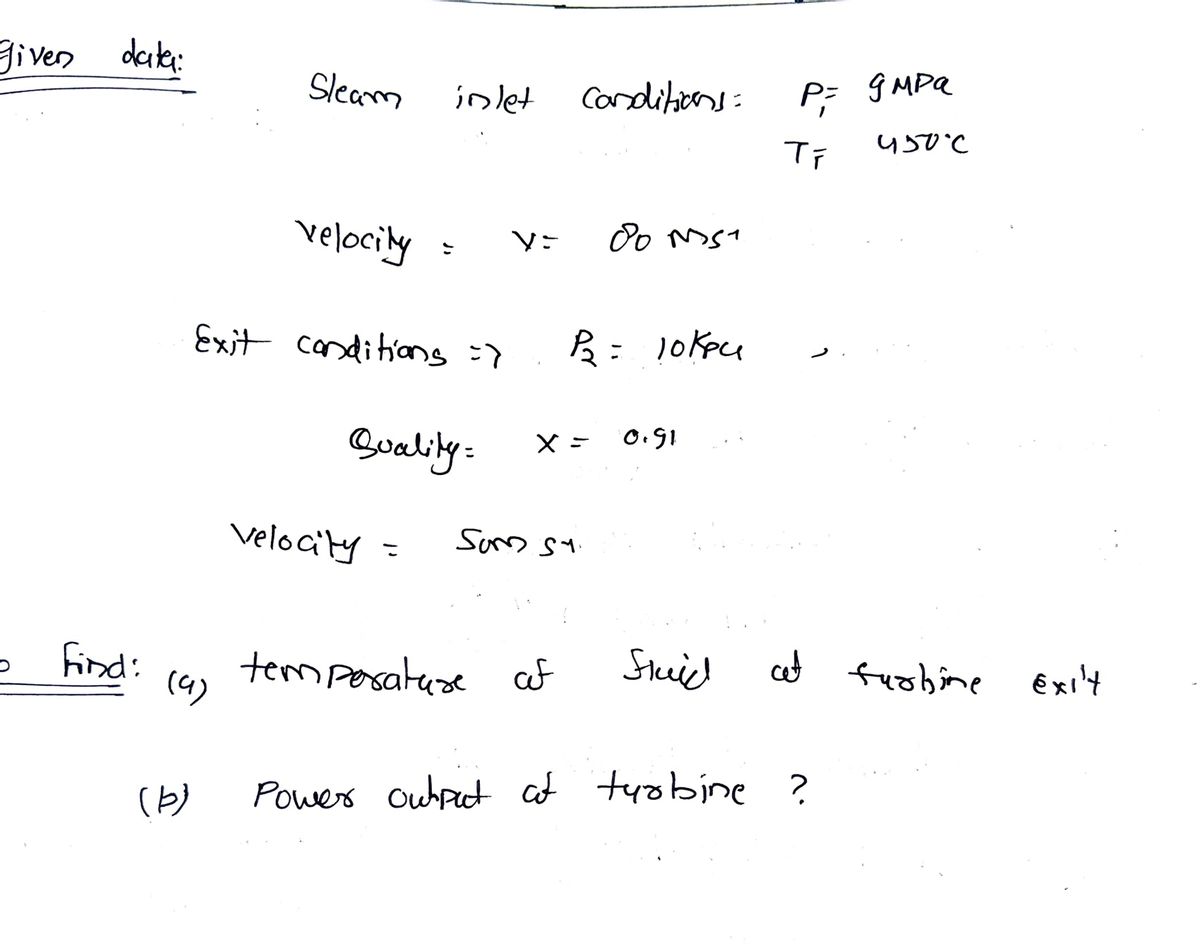 given data:
Steam inlet Conditions: P₁= 9 MPa
T₁= 450°C
velocity = V= 80 ms⁻¹
Exit conditions => P₂ = 10 Kpa ,
Quality= x = 0.91
Velocity = 50m s⁻¹.
Find: (a) temperature of fluid at turbine Exit
(b) Power output of turbine ?